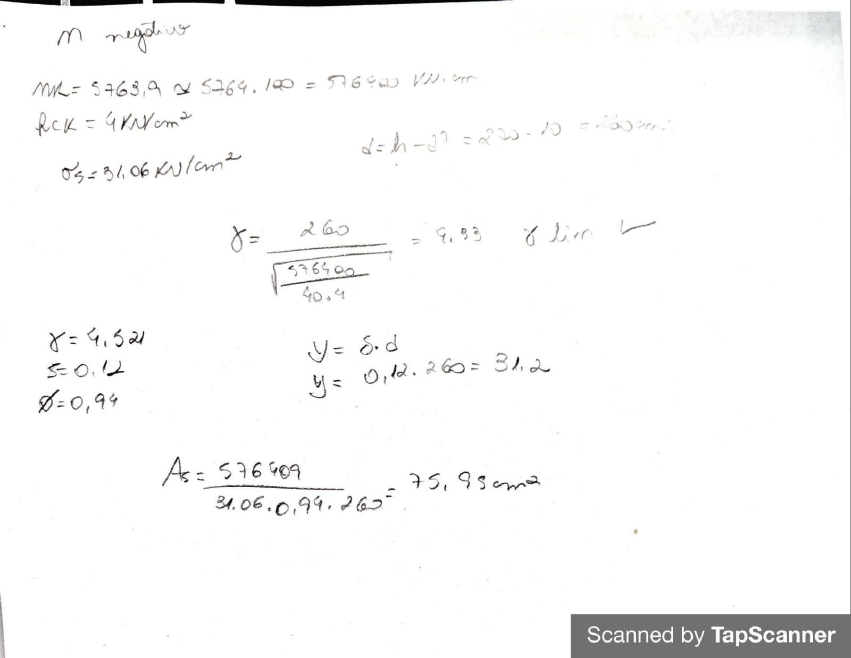 M negativo
MR = 5763,9 ≅ 5764.100 = 576400 KN.cm
fck = 4KN/cm²
σs = 31,06 KN/cm²
d = h - d' = 270 - 10 = 260 cm
γ = 260 / √(576400 / 40.4) = 4.33 γ lim
γ = 4,521
δ = 0,12
Ø = 0,94
y = δ.d
y = 0,12.260 = 31,2
As = 576409 / 31.06.0,94.260 = 75,93 cm²
Scanned by TapScanner